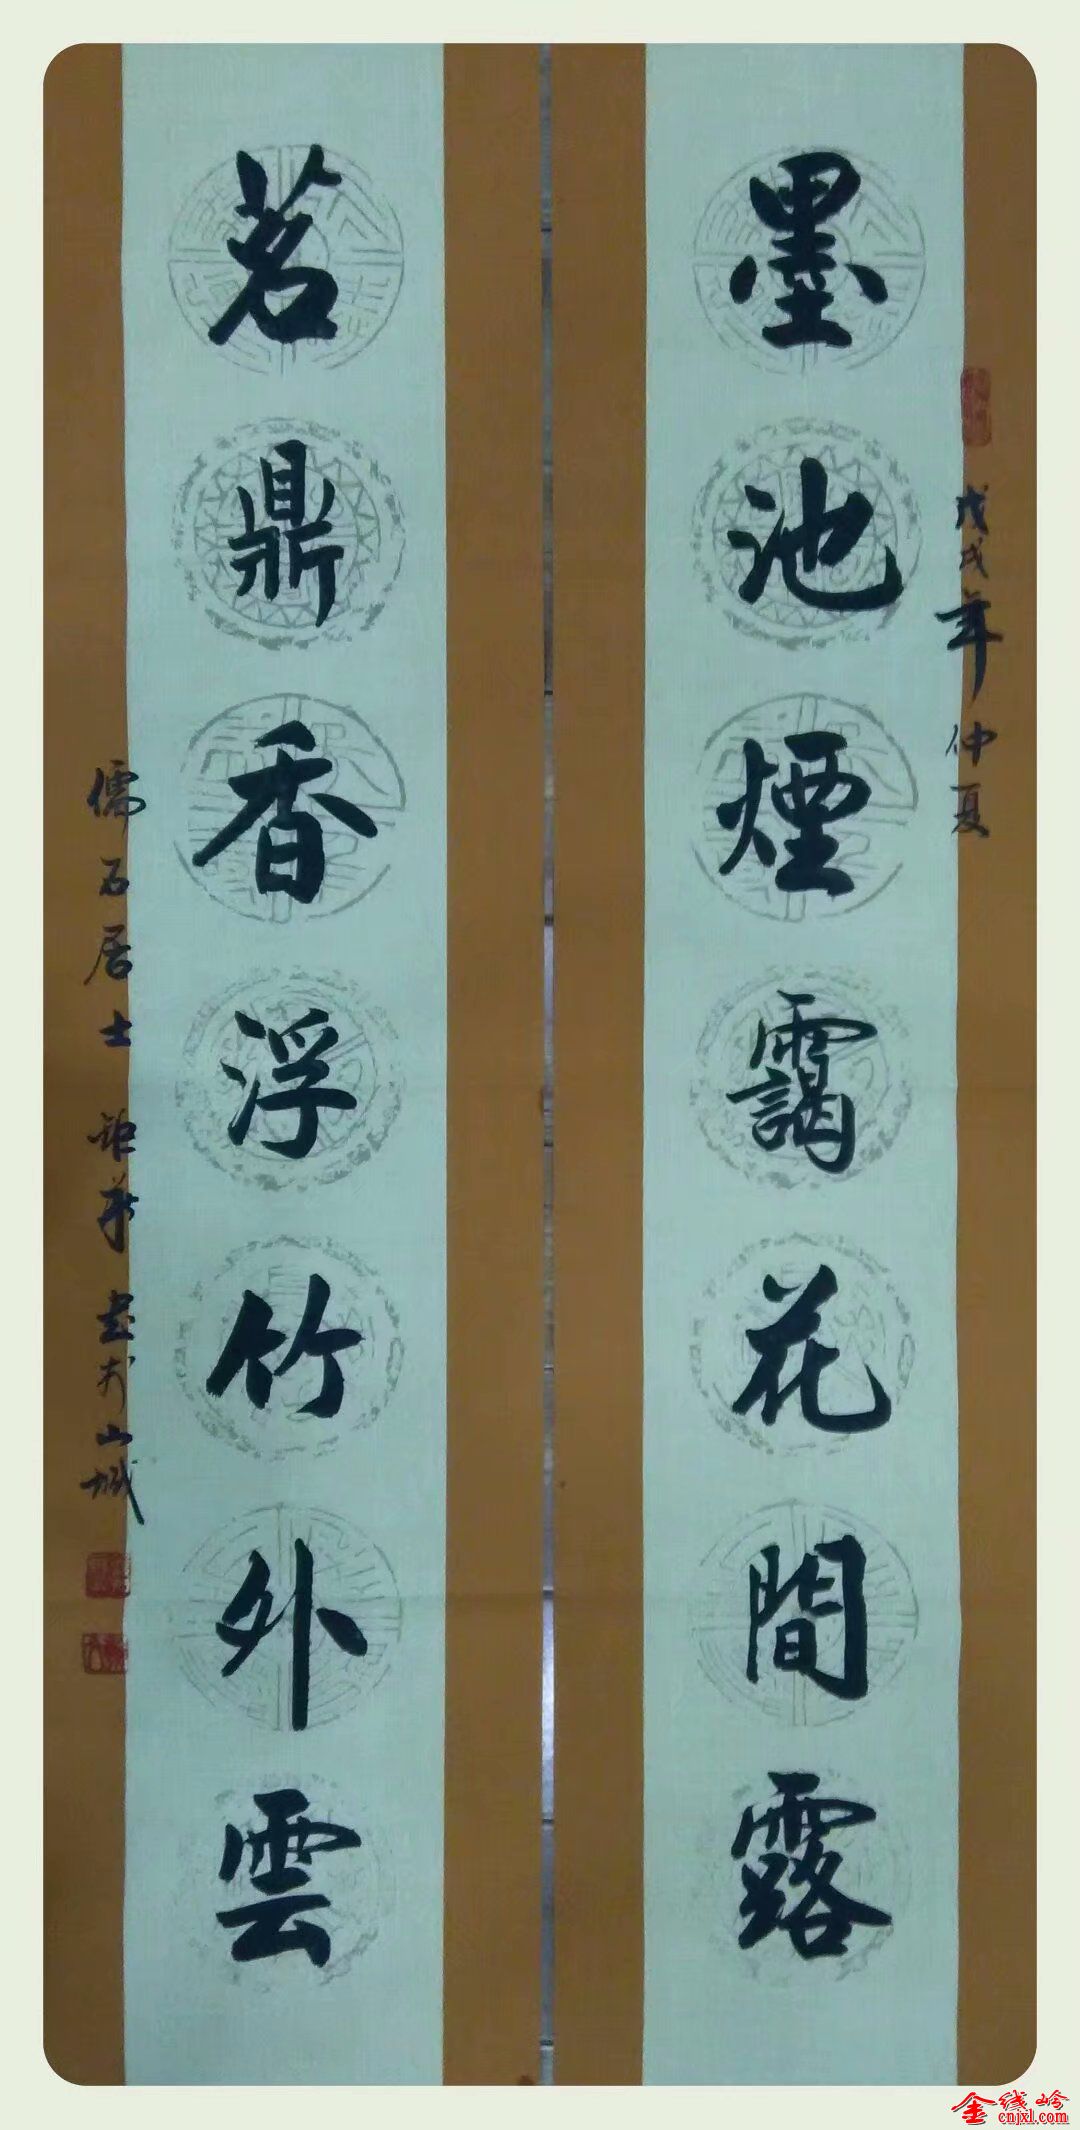 墨池煙靄花間露
戊戌年仲夏
茗鼎香浮竹外雲
儒石居士 書於山城
金线岭
cnjxl.com